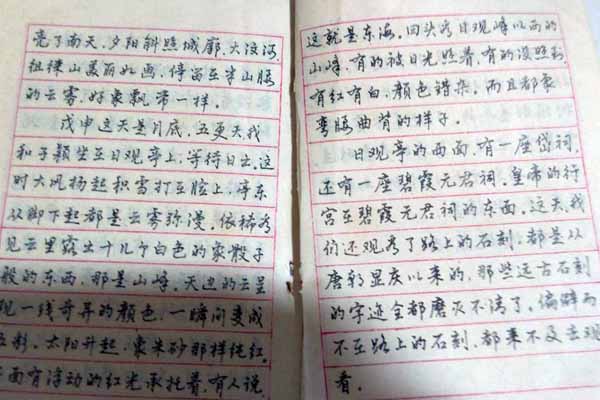 亮了南天，夕阳斜照城廓，大汶河、
徂徕山美丽如画，停留在半山腰
的云雾，好象飘带一样。
戊申这天是月底，五更天，我
和子颖坐在日观亭上，等待日出。这
时大风扬起积雪打在脸上，亭东
从脚下起都是云雾弥漫，依稀看
见云里露出十几个白色的象骰子
般的东西，那是山峰。天边的云呈
现一线奇异的颜色，一瞬间变成
五彩，太阳升起，象朱砂那样纯红。
下面有浮动的红光承托着，有人说，
这就是东海。回头看日观峰以西的
山峰，有的被日光照着，有的没照到，
有红有白，颜色错杂，而且都象
弯腰曲背的样子。
日观亭的西面，有一座岱祠，
还有一座碧霞元君祠。皇帝的行
宫在碧霞元君祠的东面。这天，我
们还观看了路上的石刻，都是从
唐朝显庆以来的，那些远古石刻
的字迹全都磨灭不清了。偏僻而
不在路上的石刻，都来不及去观
看。